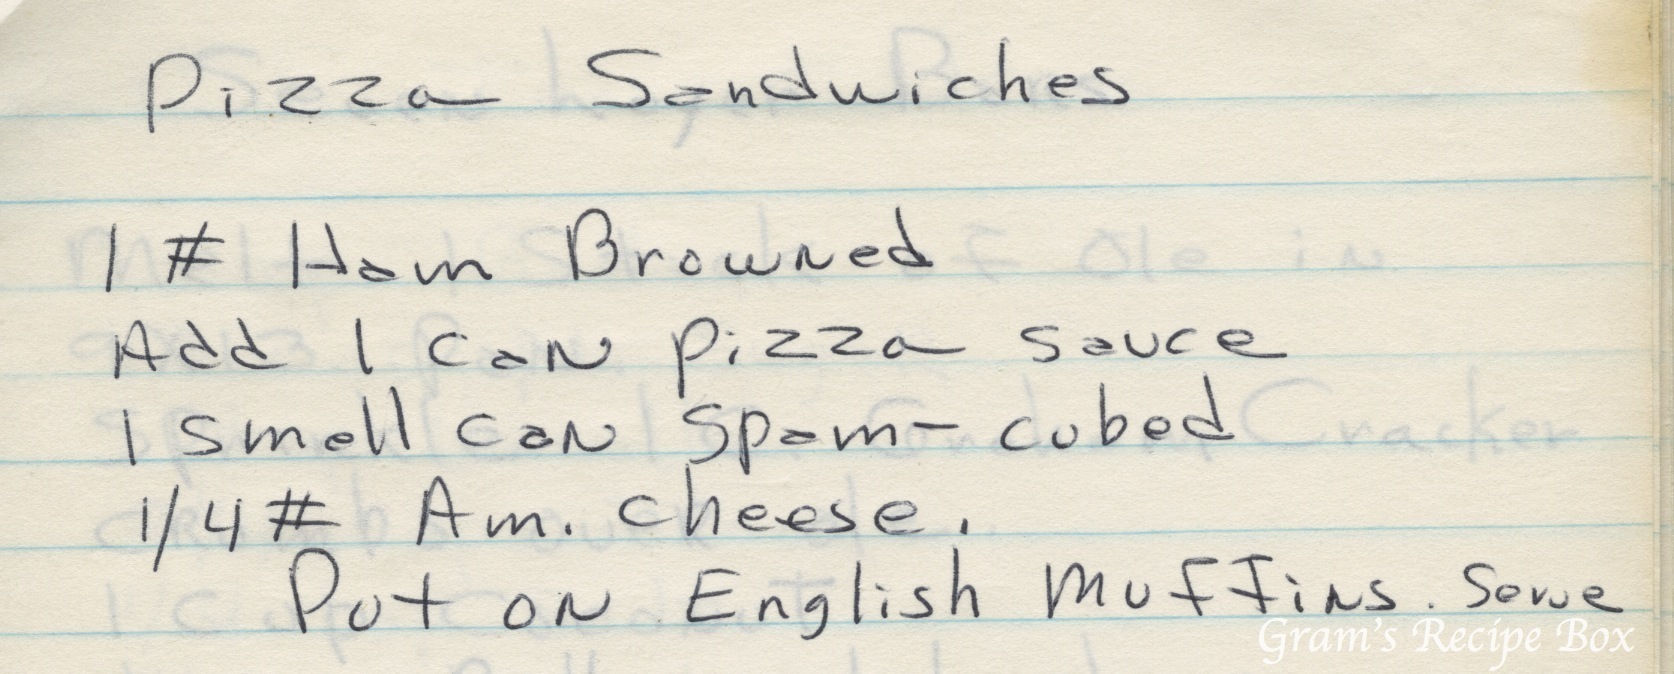 Pizza Sandwiches
1 # Ham Browned
Add 1 can pizza sauce
1 small can Spam - cubed
1/4 # Am. cheese.
Put on English Muffins. Serve
Gram's Recipe Box